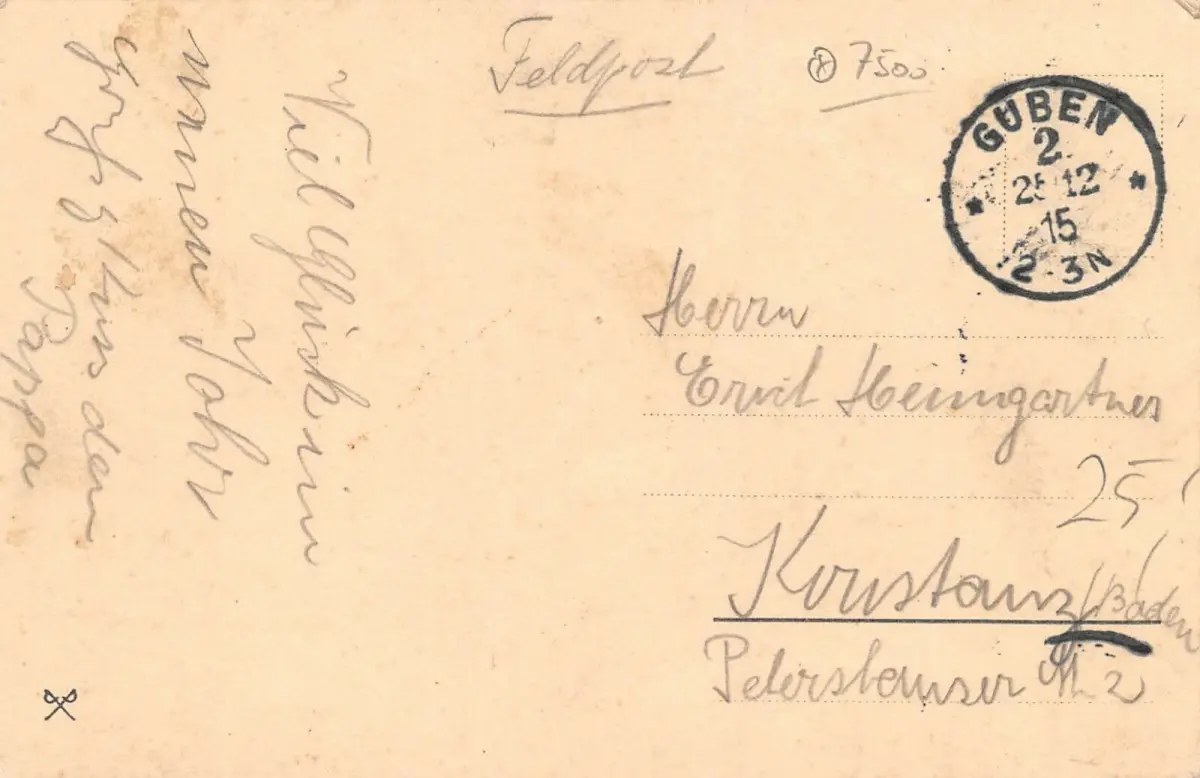 Feldpost
7500
GUBEN
2
25 12
15
2-3N
Herrn
Erich Heimgartner
25
Konstanz/Baden
Petershauser 2
Viel Glück im
neuen Jahr
Kuss dein
Pappa